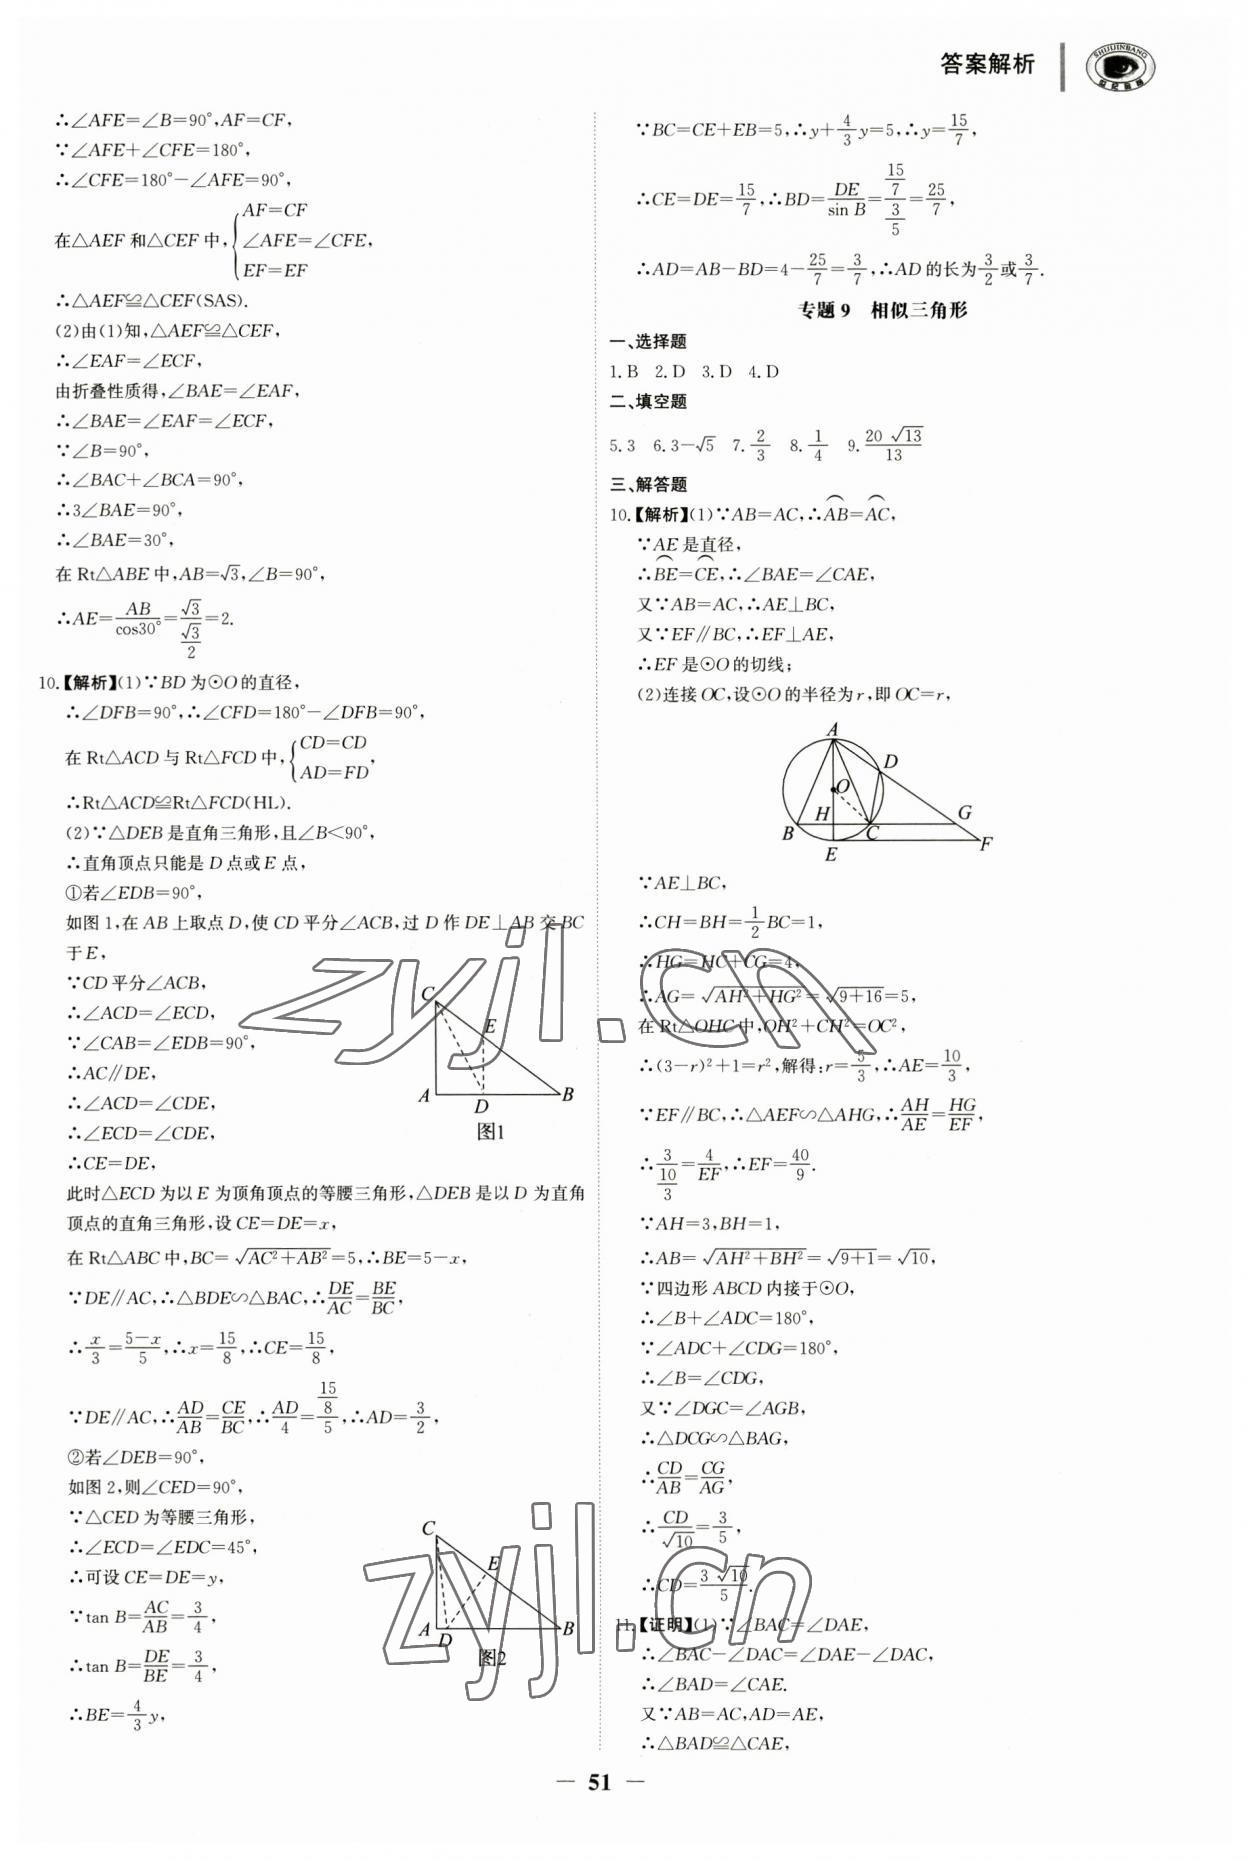 答案解析
SHIJIINBANG
∴∠AFE=∠B=90°,AF=CF,
∵∠AFE+∠CFE=180°,
∴∠CFE=180°-∠AFE=90°,
在△AEF和△CEF中,{AF=CF ∠AFE=∠CFE, EF=EF
∴△AEF≌△CEF(SAS).
(2)由(1)知,△AEF≌△CEF,
∴∠EAF=∠ECF,
由折叠性质得,∠BAE=∠EAF,
∴∠BAE=∠EAF=∠ECF,
∵∠B=90°,
∴∠BAC+∠BCA=90°,
∴3∠BAE=90°,
∴∠BAE=30°,
在Rt△ABE中,AB=√3,∠B=90°,
∴AE=AB/cos30°=√3/(√3/2)=2.
10.【解析】(1)∵BD为⊙O的直径,
∴∠DFB=90°,∴∠CFD=180°-∠DFB=90°,
在Rt△ACD与Rt△FCD中,{CD=CD AD=FD,
∴Rt△ACD≌Rt△FCD(HL).
(2)∵△DEB是直角三角形,且∠B<90°,
∴直角顶点只能是D点或E点,
①若∠EDB=90°,
如图1,在AB上取点D,使CD平分∠ACB,过D作DE⊥AB交BC
于E,
∵CD平分∠ACB,
∴∠ACD=∠ECD,
∵∠CAB=∠EDB=90°,
∴AC∥DE,
∴∠ACD=∠CDE,
∴∠ECD=∠CDE,
∴CE=DE,
C
E
A
D
B
图1
此时△ECD为以E为顶角顶点的等腰三角形,△DEB是以D为直角
顶点的直角三角形,设CE=DE=x,
在Rt△ABC中,BC=√(AC²+AB²)=5,∴BE=5-x,
∵DE∥AC,∴△BDE∽△BAC,∴DE/AC=BE/BC,
∴x/3=(5-x)/5,∴x=15/8,∴CE=15/8,
∵DE∥AC,∴AD/AB=CE/BC,∴AD/4=(15/8)/5,∴AD=3/2,
②若∠DEB=90°,
如图2,则∠CED=90°,
∵△CED为等腰三角形,
∴∠ECD=∠EDC=45°,
∴可设CE=DE=y,
∵tan B=AC/AB=3/4,
∴tan B=DE/BE=3/4,
∴BE=4/3y,
C
E
A
D
B
图2
∵BC=CE+EB=5,∴y+4/3y=5,∴y=15/7,
∴CE=DE=15/7,∴BD=DE/sin B=(15/7)/(3/5)=25/7,
∴AD=AB-BD=4-25/7=3/7,∴AD的长为3/2或3/7.
专题9 相似三角形
一、选择题
1.B 2.D 3.D 4.D
二、填空题
5.3 6.3-√5 7.2/3 8.1/4 9.20√13/13
三、解答题
10.【解析】(1)∵AB=AC,∴⌒AB=⌒AC,
∵AE是直径,
∴⌒BE=⌒CE,∴∠BAE=∠CAE,
又∵AB=AC,∴AE⊥BC,
又∵EF∥BC,∴EF⊥AE,
∴EF是⊙O的切线;
(2)连接OC,设⊙O的半径为r,即OC=r,
A
D
O
H
G
B
C
E
F
∵AE⊥BC,
∴CH=BH=1/2BC=1,
∴HG=HC+CG=4,
∴AG=√(AH²+HG²)=√(9+16)=5,
在Rt△OHC中,OH²+CH²=OC²,
∴(3-r)²+1=r²,解得:r=5/3,∴AE=10/3,
∵EF∥BC,∴△AEF∽△AHG,∴AH/AE=HG/EF,
∴3/(10/3)=4/EF,∴EF=40/9.
∵AH=3,BH=1,
∴AB=√(AH²+BH²)=√(9+1)=√10,
∵四边形ABCD内接于⊙O,
∴∠B+∠ADC=180°,
∵∠ADC+∠CDG=180°,
∴∠B=∠CDG,
又∵∠DGC=∠AGB,
∴△DCG∽△BAG,
∴CD/AB=CG/AG,
∴CD/√10=3/5,
∴CD=3√10/5.
11.【证明】(1)∵∠BAC=∠DAE,
∴∠BAC-∠DAC=∠DAE-∠DAC,
∴∠BAD=∠CAE.
又∵AB=AC,AD=AE,
∴△BAD≌△CAE,
zyjl.cn
zyjl.cn
— 51 —